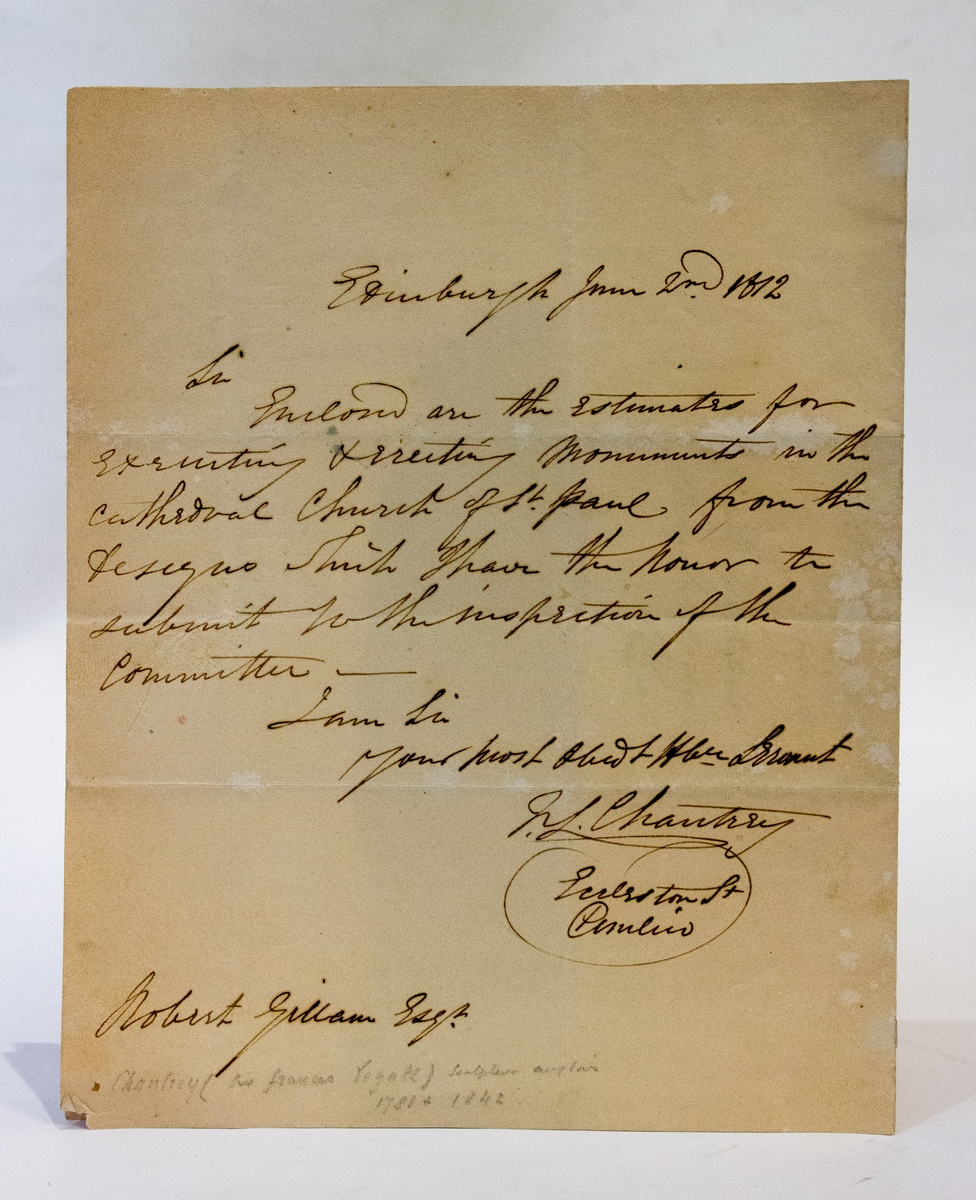 Edinburgh June 2nd 1812
Sir
Enclosed are the estimates for
Executing & erecting Monuments in the
cathedral Church of St. Paul from the
designs which I have the honor to
submit to the inspection of the
Committee —
I am Sir
your most Obedt Hble Servant
F. L. Chantrey
Eccleston St
Pimlico
Robert Gillam Esqr.
Chantrey ( francis Legatt) sculpteur anglais
1781 + 1842